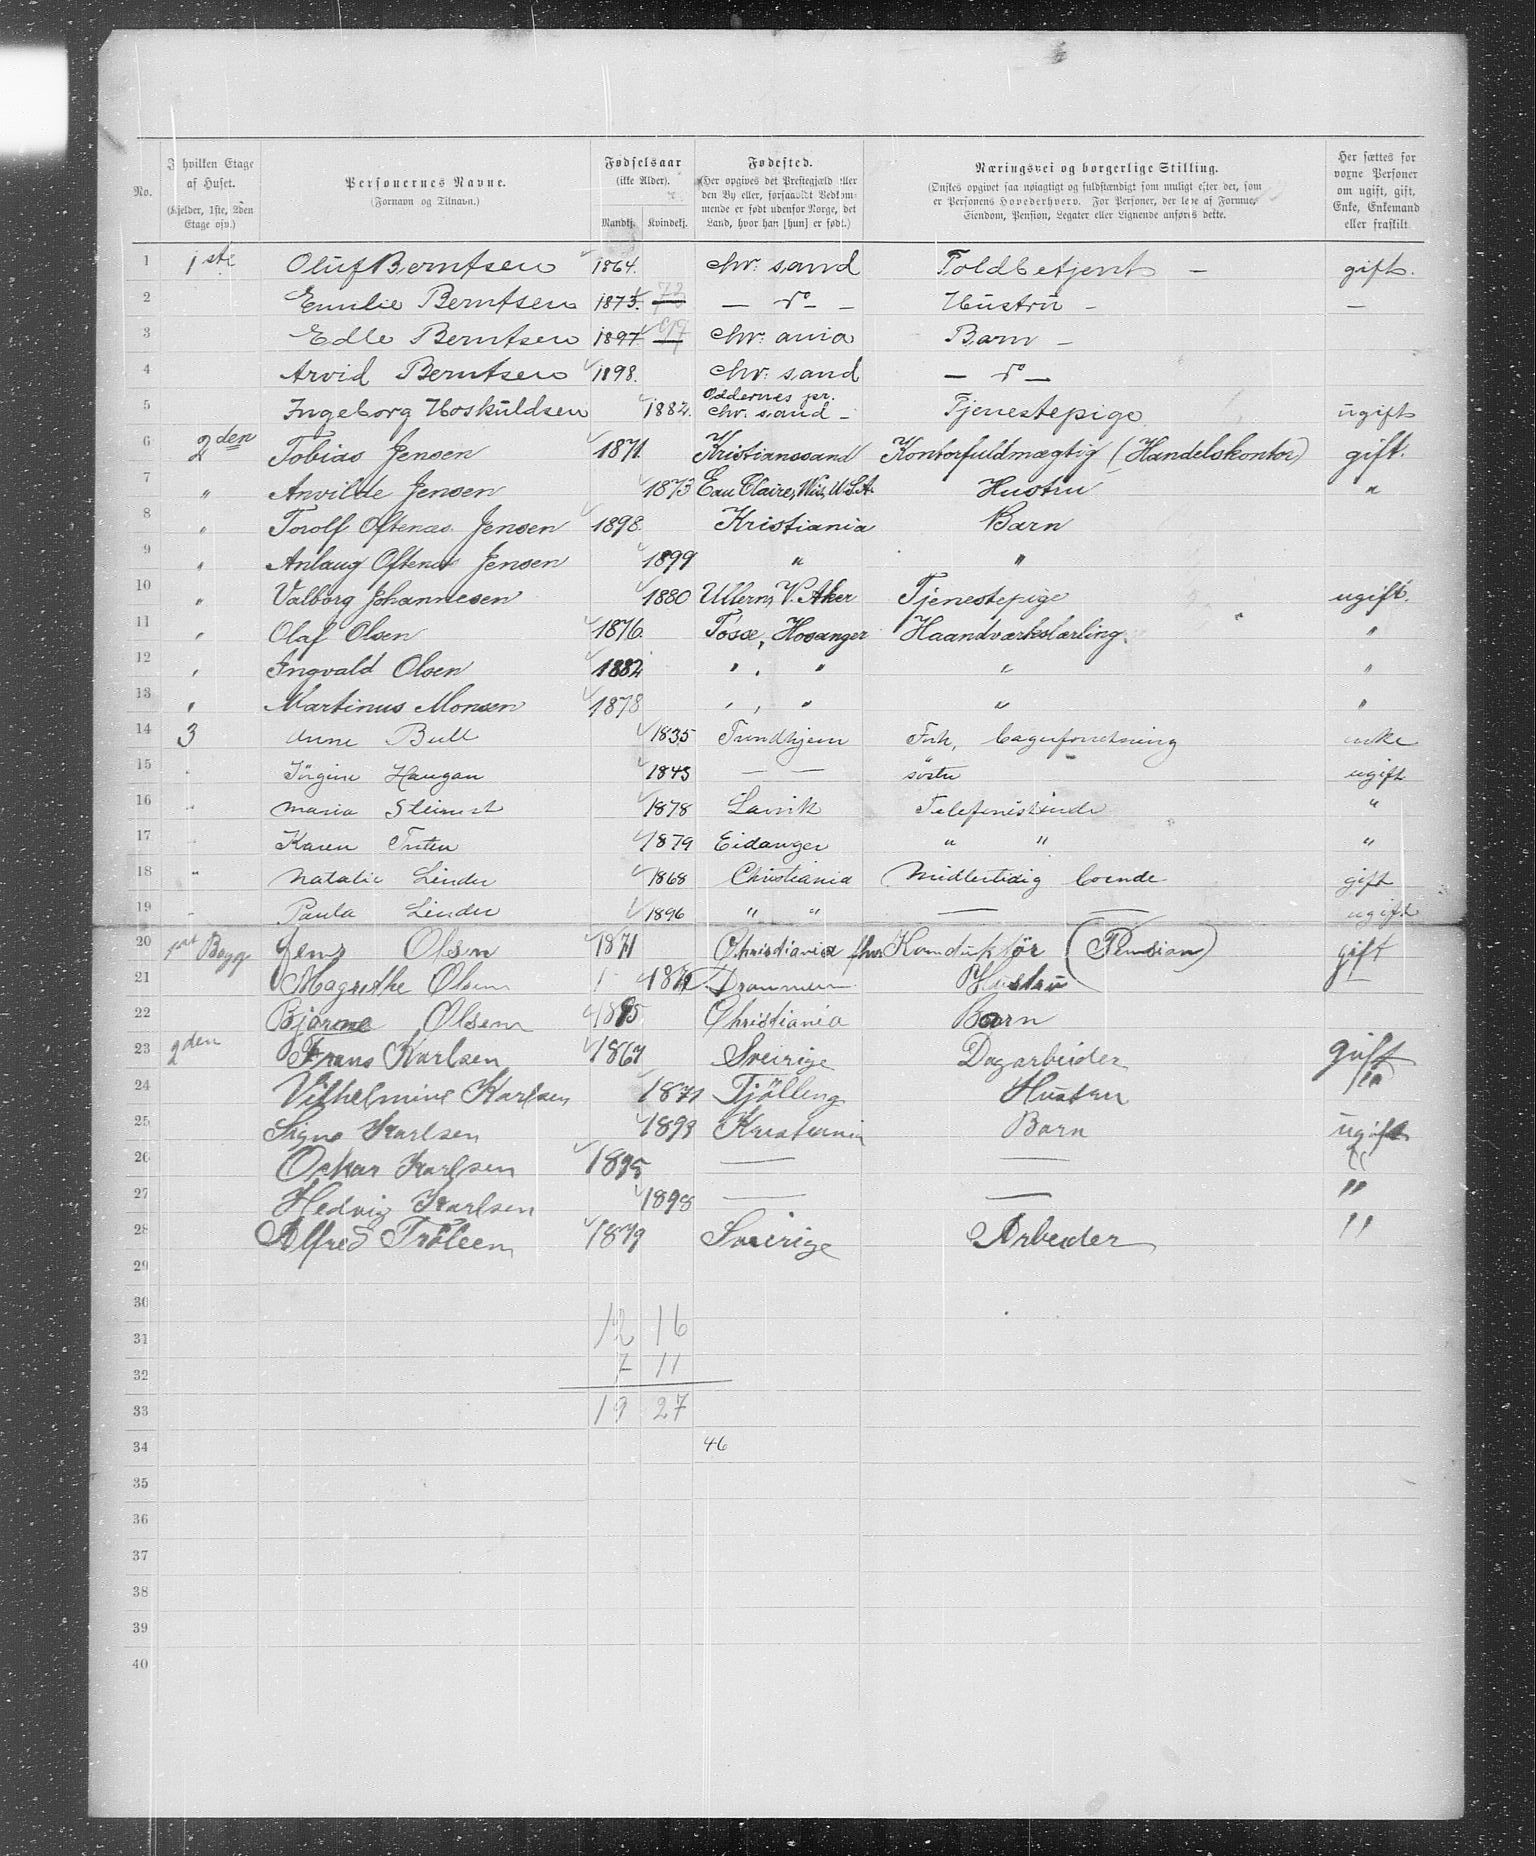 No. | I hvilken Etage af Huset. (Kjelder, 1ste, 2den Etage osv.) | Personernes Navne. (Fornavn og Tilnavn.) | Fødselsaar (ikke Alder). Mandkj. Kvindekj. | Fødested. (Her opgives det Prestegjæld eller den By eller, forsaavidt Vedkommende er født udenfor Norge, det Land, hvor han [hun] er født.) | Næringsvei og borgerlige Stilling. (Ønskes opgivet saa nøiagtigt og fuldstændigt som muligt efter det, som er Personens Hovederhverv. For Personer, der leve af Formue, Eiendom, Pension, Legater eller Lignende anføres dette.) | Her sættes for voxne Personer om ugift, gift, Enke, Enkemand eller fraskilt
1 1ste Oluf Berntsen 1864. Chr: sand Toldbetjent – gift.
2 Emilie Berntsen 1873. 73 – do – Hustru – –
3 Edle Berntsen 1897 97 Chr: ania Barn –
4 Arvid Berntsen 1898. Chr: sand – do –
5 Ingeborg Hoskuldsen 1882. Oddernes pr. Chr. sand – Tjenestepige ugift
6 2den Tobias Jensen 1871. Kristianssand Kontorfuldmægtig (Handelskontor) gift.
7 " Anvilde Jensen 1873 Eau Claire, Wis, U.S.A. Hustru "
8 " Torolf Oftenæs Jensen 1898. Kristiania Barn
9 " Anlaug Oftenæs Jensen 1899 " "
10 " Valborg Johannesen 1880 Ullern, V. Aker Tjenestepige ugift.
11 " Olaf Olsen 1876. Fosse, Hosanger Haandværkslærling. "
12 " Ingvald Olsen 1882 " , " " "
13 " Martinus Monsen 1878 " , " " "
14 3 Anne Bull 1835 Trondhjem Forh. enke
15 " Jörgine Haugan 1843 — — söster ugift
16 " Maria 1878 Telefonistinde "
17 " Karen 1879 Eidanger " " "
18 " Natalie Linder 1868 Christiania Midlertidig boende gift
19 " Paula Linder 1896 " " — — ugift
20 1ste Bagg Jens Olsen 1871 Christiania Konduktör (Pension) gift
21 Magrethe Olsen Drammen Hustru –
22 Bjarne Olsen 1895 Christiania Barn
23 2den Frans Karlsen 1867 Sveirige Dagarbeider gift
24 Vilhelmine Karlsen 1871 Tjölling Hustru
25 Signe Karlsen 1893 Kristiania Barn ugift
26 Oskar Karlsen 1895 — — "
27 Hedvig Karlsen 1898 — — "
28 Alfred 1879 Sveirige Arbeider "
29
30
12 16
31
7 11
32
19 27
33
34 46
35
36
37
38
39
40